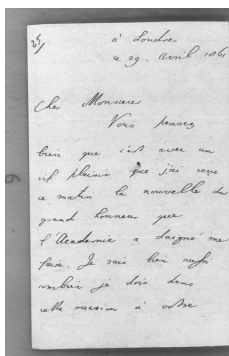 25/
à Londres
ce 29. avril 1861
Cher Monsieur
Vous pensez
bien que c'est avec un
vif plaisir que j'ai reçu
ce matin la nouvelle du
grand honneur que
l'Academie a daigné me
faire. Je sais bien aussi
combien je dois dans
cette occasion à votre